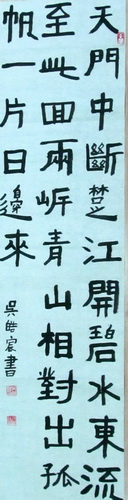 天門中斷楚江開碧水東流
至此回兩岸青山相對出孤
帆一片日邊來
吳皓宸書